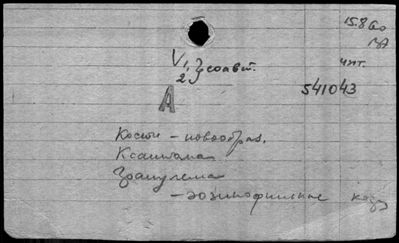 15.8
V, 3 соавт.
2
чит.
541043
А
Кости – новообраз.
Ксантома
Гранулема
– эозинофильные